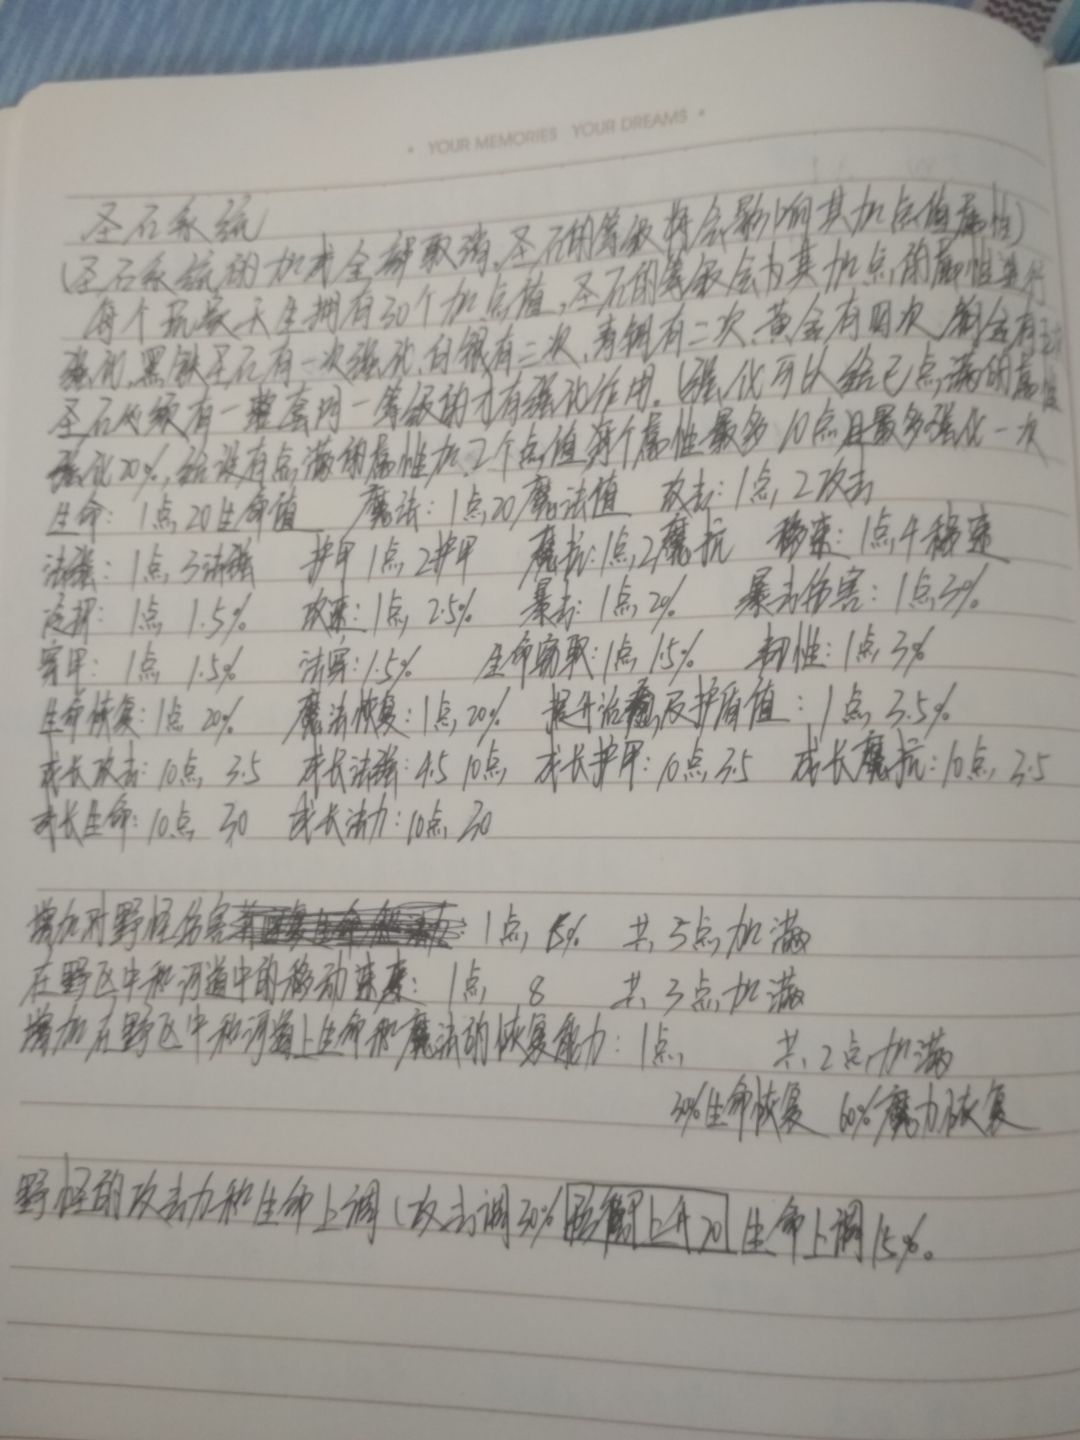 YOUR MEMORIES YOUR DREAMS
圣石系统
(圣石系统的加成全部取消,圣石的等级将会影响其加点值属性)
每个玩家天生拥有30个加点值,圣石的等级会为其加点的属性进行
强化,黑铁圣石有一次强化,白银有二次、青铜有二次、黄金有四次
圣石必须有一整套同一等级的才有强化作用。(强化可以给已点满的属性
强化20%,给没有点满的属性加2个点值,每个属性最多10点且最多强化一次
生命: 1点,20生命值 魔法:1点,20魔法值 攻击:1点,2攻击
法强: 1点,3法强 护甲1点,2护甲 魔抗:1点,2魔抗 移速:1点,4移速
冷却: 1点 1.5% 攻速:1点,2.5% 暴击:1点,2% 暴击伤害:1点,3%
穿甲: 1点 1.5% 法穿:1.5% 生命窃取:1点,1.5% 韧性:1点,3%
生命恢复:1点 20% 魔法恢复:1点,20% 提升治疗及护盾值:1点,3.5%
成长攻击:10点,3.5 成长法强:4.5 10点, 成长护甲:10点,3.5 成长魔抗:10点,3.5
成长生命:10点 30 成长法力:10点,30
增加对野怪伤害:1点, 15% 共3点加满
在野区中和河道中的移动速度:1点, 8 共3点加满
增加在野区中和河道上生命和魔法的恢复能力:1点, 共2点加满
30%生命恢复 60%魔力恢复
野怪的攻击力和生命上调(攻击调30% 上升20 生命上调15%。